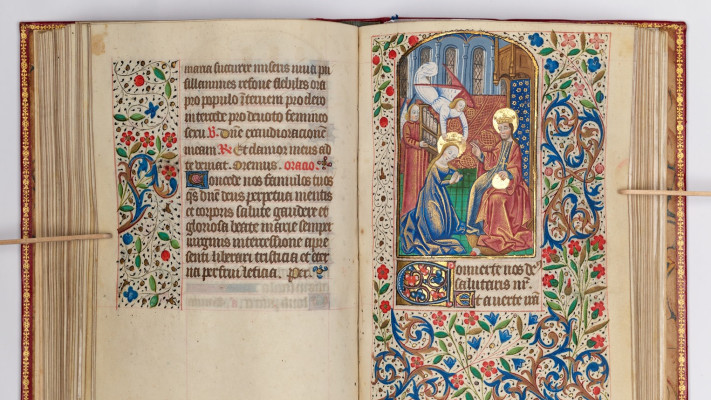 maria succurre miseris iuva pu
sillanimes refove flebiles ora
pro populo interveni pro clero
intercede pro devoto femineo
sexu. R Dne exaudi oracione
meam. R Et clamor meus ad
te veniat. Oremus. oracio.
Concede nos famulos tuos
qs dne deus perpetua mentis
et corporis salute gaudere et
gloriosa beate marie semper
virginis intercessione a pre
senti liberari tristicia et eter
na perfrui leticia. Per
Converte nos de
salutaris nr.
Et averte iram